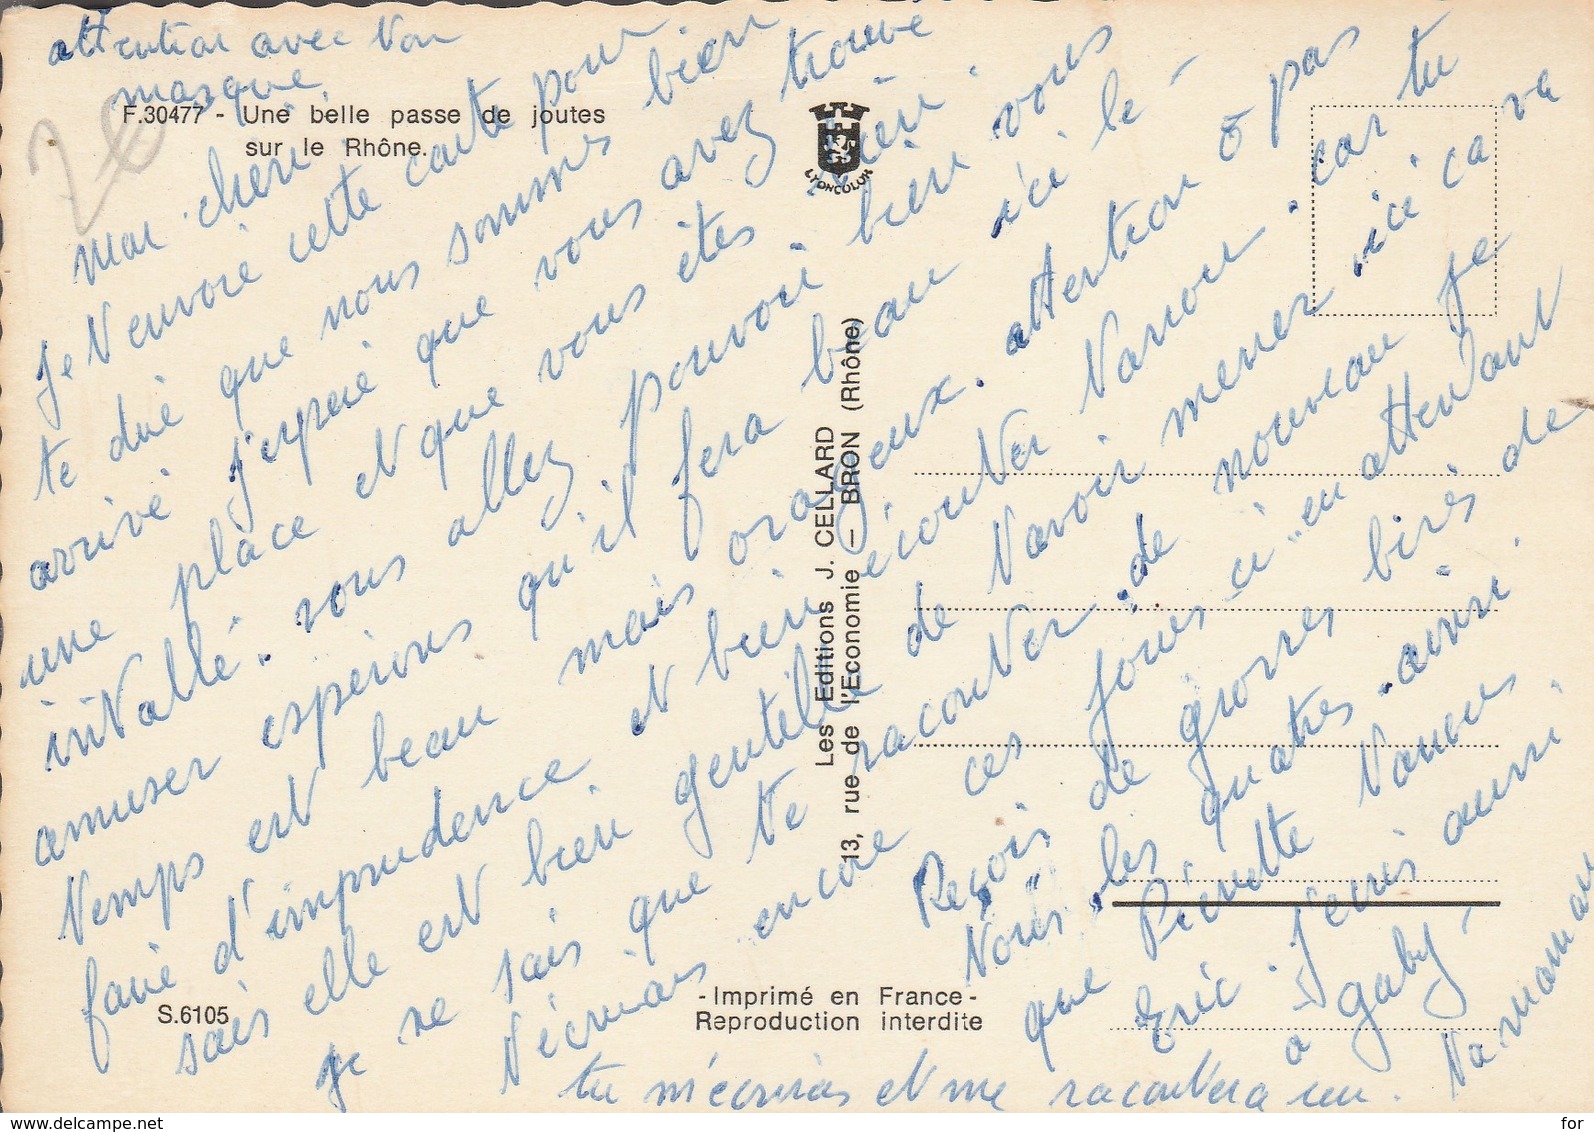 attention avec ton
masque.
F.30477 - Une belle passe de joutes
sur le Rhône.
LYONCOLOR
mon cheri
Je t'envoie cette carte pour
te dire que nous sommes bien
arrivé j'espere que vous avez trouve
une place et que vous êtes bien
intallé. vous allez pouvoir bien vous
amuser esperons qu'il fera beau ici le
temps est beau mais orageux. attention o pas
faire d'imprudence et bien écouter tanon. car tu
sais elle est bien gentille de t'avoir mener ici ça va
je ne sais que te raconter. de nouveau je
t'écrirais encore ces jours ci en attendant
Reçois de grosses bises de
Nous les quatres ainsi
que Pierrette tannes
Eric. J'écris aussi
à gaby
tu m'écriras et me racontera un. ta maman
Les Editions J. CELLARD
13, rue de l'Economie - BRON (Rhône)
S.6105
- Imprimé en France -
Reproduction interdite
for